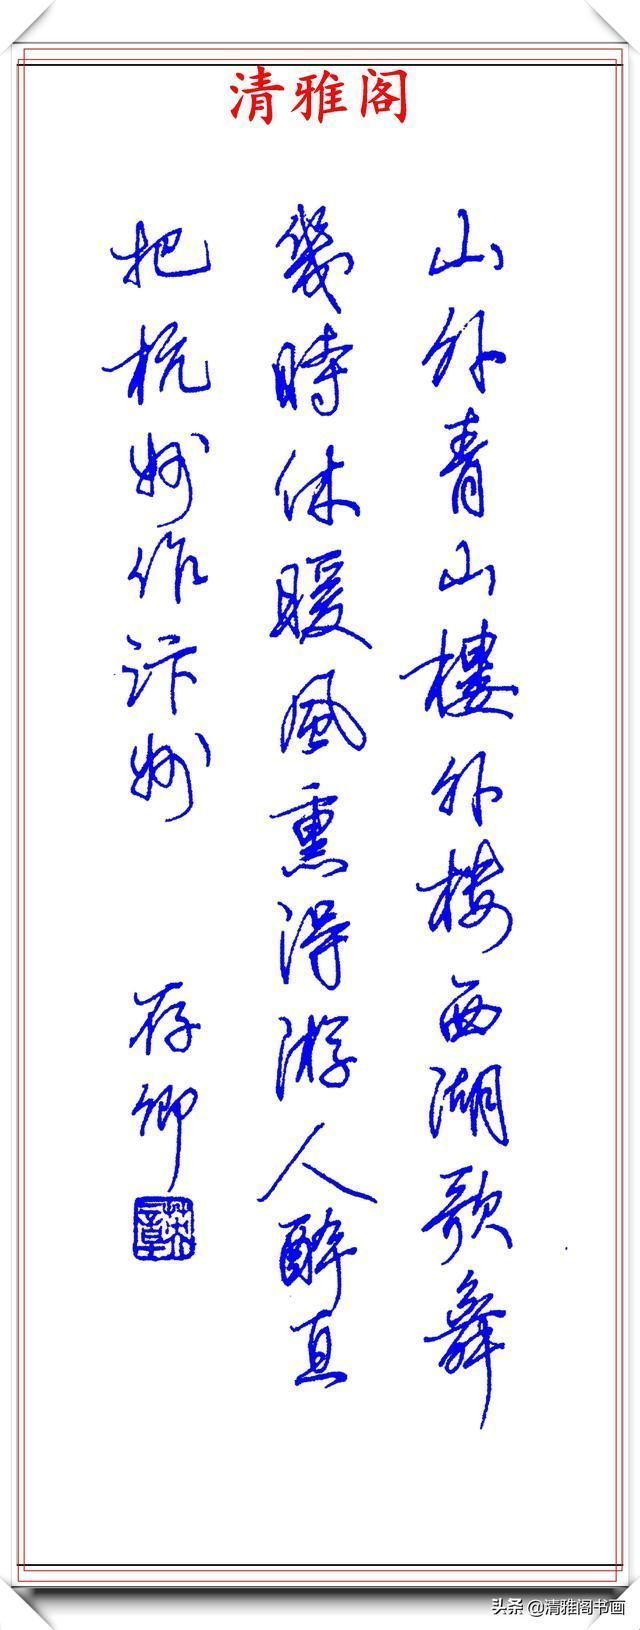 清雅阁
山外青山樓外楼西湖歌舞
幾時休暖風熏得游人醉直
把杭州作汴州
存卿
头条 @清雅阁书画